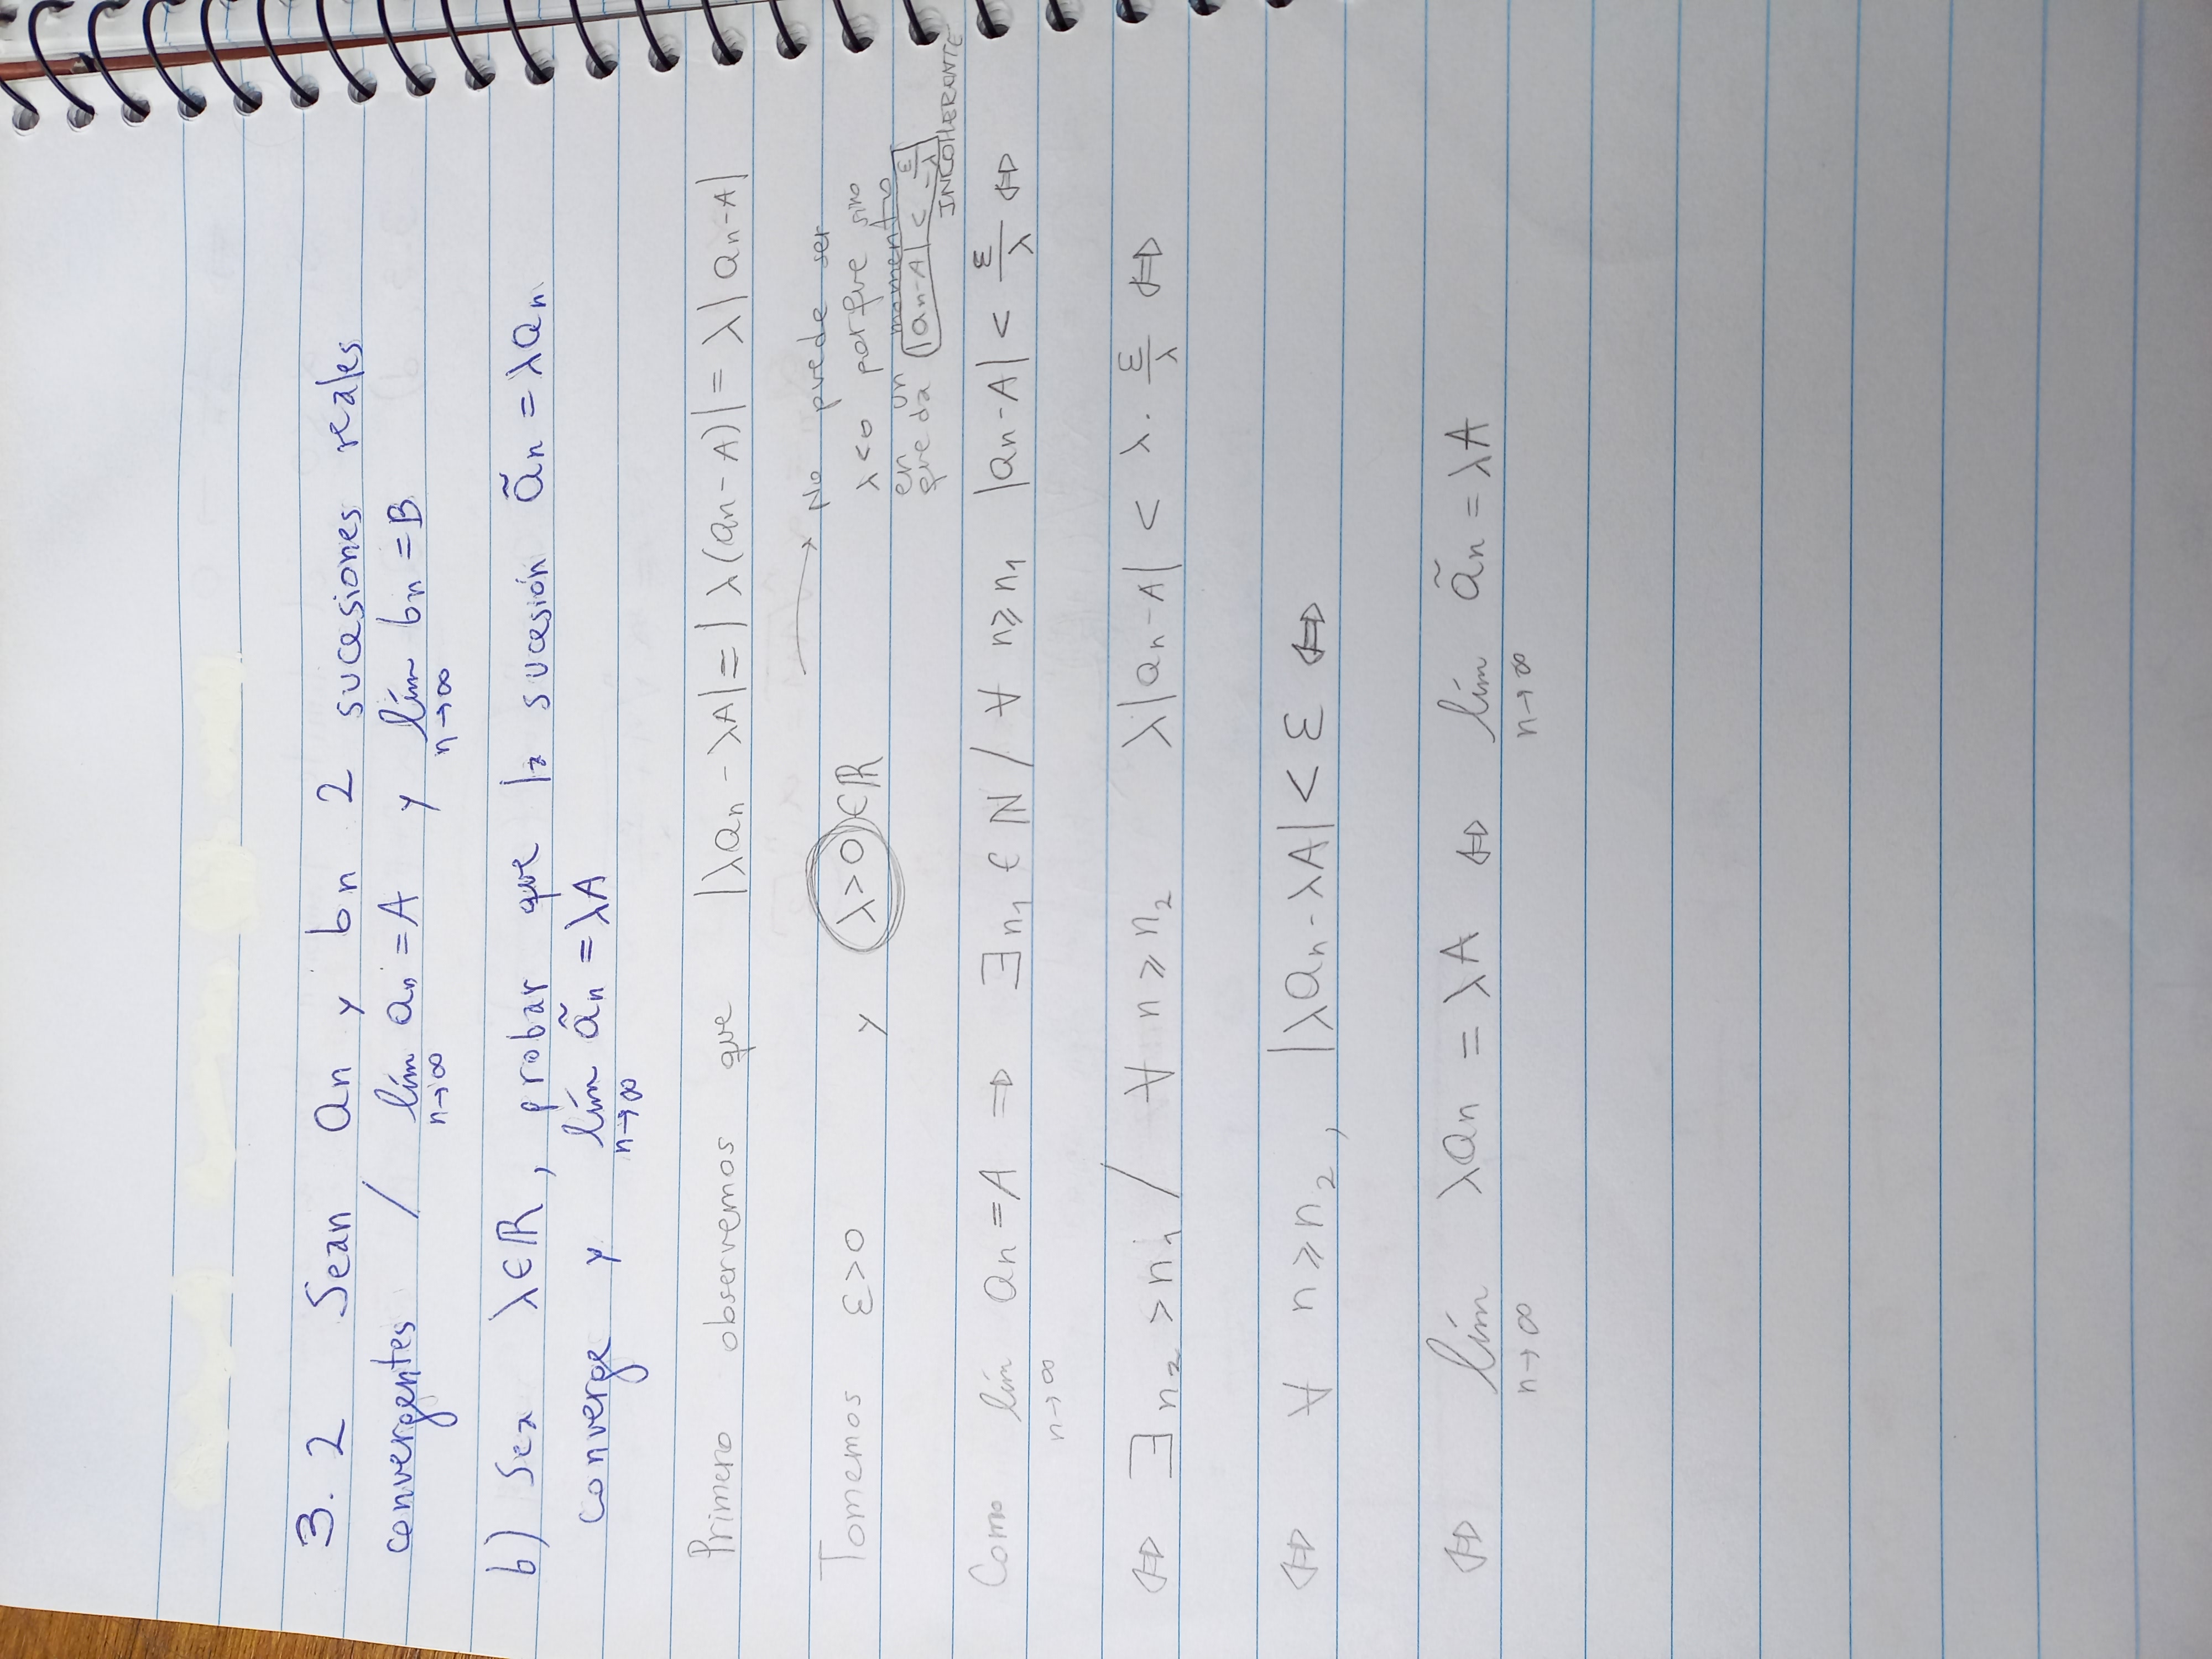 3. 2 Sean an y bn 2 sucesiones reales
convergentes / lím an = A y lím bn = B
n→∞ n→∞
b) Sea λ∈ℝ, probar que la sucesión ãn = λan
converge y lím ãn = λA
n→∞
Primero observemos que |λan - λA| = |λ(an - A)| = λ|an - A|
Tomemos ε>0 y λ>0 ∈ℝ → No puede ser
λ<0 porque sino
en un momento
queda |an-A| < ε/-λ
INCOHERENTE
Como lím an = A ⇒ ∃ n₁ ∈ ℕ / ∀ n≥n₁ |an - A| < ε/λ ⇔
n→∞
⇔ ∃ n₂ > n₁ / ∀ n ≥ n₂ λ|an - A| < λ. ε/λ ⇔
⇔ ∀ n ≥ n₂, |λan - λA| < ε ⇔
⇔ lím λan = λA ⇔ lím ãn = λA
n→∞ n→∞